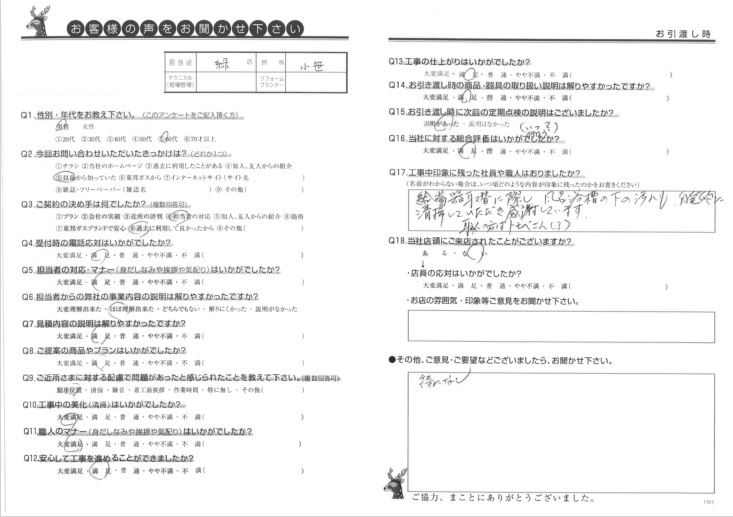 お客様の声をお聞かせ下さい
担当店 緑 店 担当 小笹
テクニカル(現場管理) リフォームプランナー
Q1.性別・年代をお教え下さい。(このアンケートをご記入頂く方)
男性 女性
①20代 ②30代 ③40代 ④50代 ⑤60代 ⑥70才以上
Q2.今回お問い合わせいただいたきっかけは?(どれか1つ)
①チラシ ②当社のホームページ ③過去に利用したことがある ④知人、友人からの紹介
⑤以前から知っていた ⑥東邦ガスから ⑦インターネットサイト(サイト名 )
⑧雑誌・フリーペーパー(雑誌名 ) ⑨その他( )
Q3.ご契約の決手は何でしたか?(複数回答可)
①プラン ②会社の実績 ③近所の評判 ④担当者の対応 ⑤知人、友人からの紹介 ⑥価格
⑦東邦ガスブランドで安心 ⑧過去に利用して良かったから ⑨その他( )
Q4.受付時の電話応対はいかがでしたか?
大変満足・満 足・普 通・やや不満・不 満( )
Q5.担当者の対応・マナー(身だしなみや挨拶や気配り)はいかがでしたか?
大変満足・満 足・普 通・やや不満・不 満( )
Q6.担当者からの弊社の事業内容の説明は解りやすかったですか?
大変理解出来た・ほぼ理解出来た・どちらでもない・解りにくかった・説明がなかった
Q7.見積内容の説明は解りやすかったですか?
大変満足・満 足・普 通・やや不満・不 満( )
Q8.ご提案の商品やプランはいかがでしたか?
大変満足・満 足・普 通・やや不満・不 満( )
Q9.ご近所さまに対する配慮で問題があったと感じられたことを教えて下さい。(複数回答可)
駐車位置・清掃・騒音・着工前挨拶・作業時間・特に無し・その他( )
Q10.工事中の美化(清掃)はいかがでしたか?
大変満足・満 足・普 通・やや不満・不 満( )
Q11.職人のマナー(身だしなみや挨拶や気配り)はいかがでしたか?
大変満足・満 足・普 通・やや不満・不 満( )
Q12.安心して工事を進めることができましたか?
大変満足・満 足・普 通・やや不満・不 満( )
お引渡し時
Q13.工事の仕上がりはいかがでしたか?
大変満足・満 足・普 通・やや不満・不 満( )
Q14.お引き渡し時の商品・器具の取り扱い説明は解りやすかったですか?
大変満足・満 足・普 通・やや不満・不 満( )
Q15.お引き渡し時に次回の定期点検の説明はございましたか?
説明があった・説明はなかった (いつ?)
Q16.当社に対する総合評価はいかがでしたか?
大変満足・満 足・普 通・やや不満・不 満( )
Q17.工事中印象に残った社員や職人はおりましたか?
(名前がわからない場合は、いつ頃どのような内容が印象に残ったのかをお書きください)
給湯器取替に際し、風呂浴槽の下の汚れも、完璧に
清掃していただき感謝しています。
Q18.当社店頭にご来店されたことがございますか?
あ る・な い
↓
・店員の応対はいかがでしたか?
大変満足・満 足・普 通・やや不満・不 満( )
・お店の雰囲気・印象等ご意見をお聞かせ下さい。
●その他、ご意見・ご要望などございましたら、お聞かせ下さい。
特になし
ご協力、まことにありがとうございました。